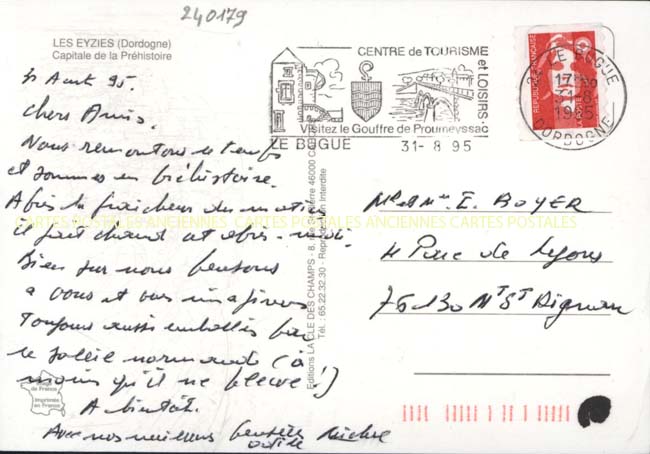 240179
LES EYZIES (Dordogne)
Capitale de la Préhistoire
31 Août 95.
Chers Amis.
Nous remontons le temps
et sommes en préhistoire.
Après la fraîcheur du matin
il fait chaud cet après-midi
Bien sur nous pensons
a vous et vous imaginons
Toujours aussi emballés par
le soleil normand (à
moins qu'il ne pleuve!)
A bientôt.
Avec nos meilleures pensées
Odile Michel
CENTRE de TOURISME
et LOISIRS
Visitez le Gouffre de Proumeyssac
LE BUGUE 31-8 95
24 LE BUGUE
17H
31-8
1995
DORDOGNE
REPUBLIQUE FRANÇAISE
LA POSTE
Editions LA CLE DES CHAMPS - 8, 46000
Tél. : 65.22.32.30 - Reproduction Interdite
Mr & Me E. BOYER
4 Parc de Lyons
76130 Mt St Aignan
CARTES POSTALES ANCIENNES CARTES POSTALES ANCIENNES CARTES POSTALES
de France
Imprimée
en France